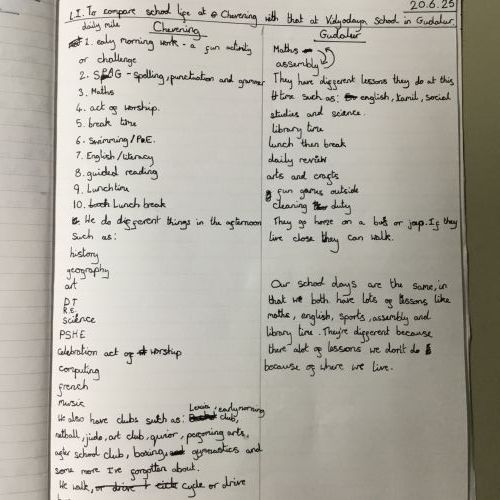 20.6.25
L.I. To compare school life at Chevening with that at Vidyodaya School in Gudalur.
daily mile
Chevening
1. ealy morning work - a fun activity
or challenge
2. SPAG - spelling, punctuation and grammer
3. Maths
4. act of worship.
5. break time
6. Swimming / P.E.
7. English / literacy
8. guided reading
9. Lunchtime
10. Lunch break
We do different things in the afternoon
Such as:
history
geography
art
DT
R.E.
Science
PSHE
Celebration act of worship
computing
french
music
We also have clubs such as: Lexia, early morning club,
netball, judo, art club, quior, pegoning arts,
after school club, boxing, gymnastics and
some more I've forgotten about.
We walk, cycle or drive
Gudalur
Maths
assembly
They have different lessons they do at this
time such as: english, tamil, social
studies and science.
library time
lunch then break
daily review
arts and crafts
fun games outside
cleaning duty
They go home on a bus or jeep. If they
live close they can walk.
Our school days are the same, in
that we both have lots of lessons like
maths, english, sports, assembly and
library time. They're different because
there alot of lessons we don't do
because of where we live.